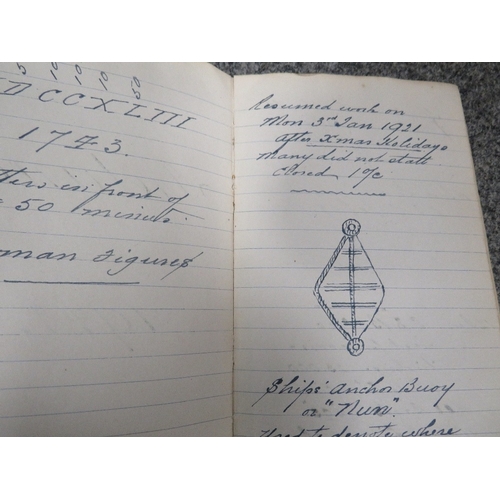 5 10 10 10 50
DCCXLIII
1743.
in front of
50 minute
man Figures
Resumed work on
Mon 3rd Jan 1921
after Xmas Holidays
many did not start
closed
Ships' Anchor Buoy
or "Nun".
Used to denote where